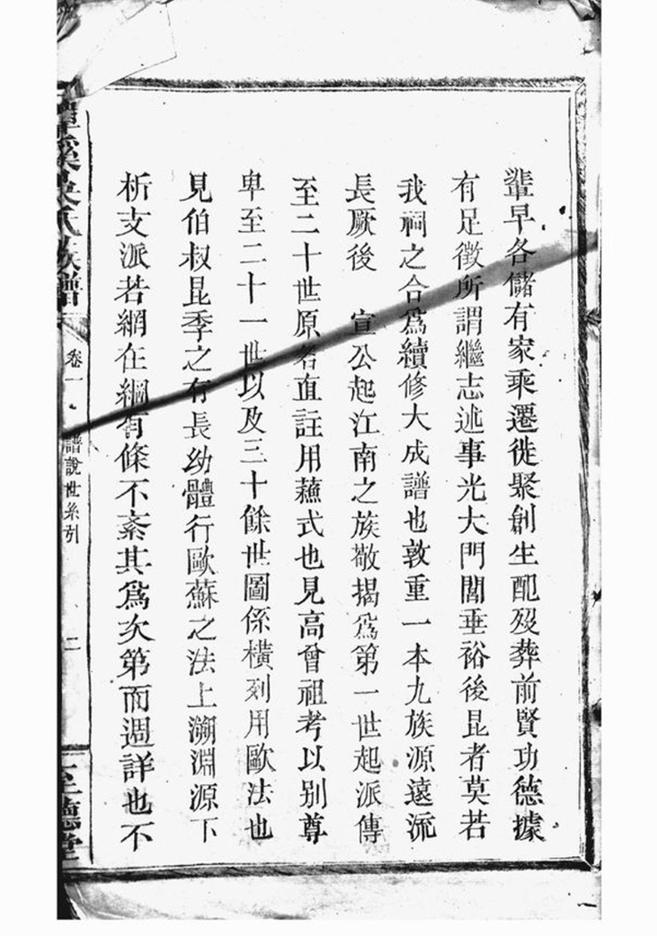 輩早各儲有家乘遷徙聚創生配歿葬前賢功德據
有足徵所謂繼志述事光大門閭垂裕後昆者莫若
我祠之合爲續修大成譜也敦重一本九族源遠流
長厥後 宣公起江南之族敬揭爲第一世起派傳
至二十世原名直註用蘓式也見高曾祖考以別尊
卑至二十一世以及三十餘世圖係橫列用歐法也
見伯叔昆季之有長幼體行歐蘇之法上溯淵源下
析支派若網在綱有條不紊其爲次第而週詳也不
溪吳氏族譜
卷一
譜說世系列
二
至德堂